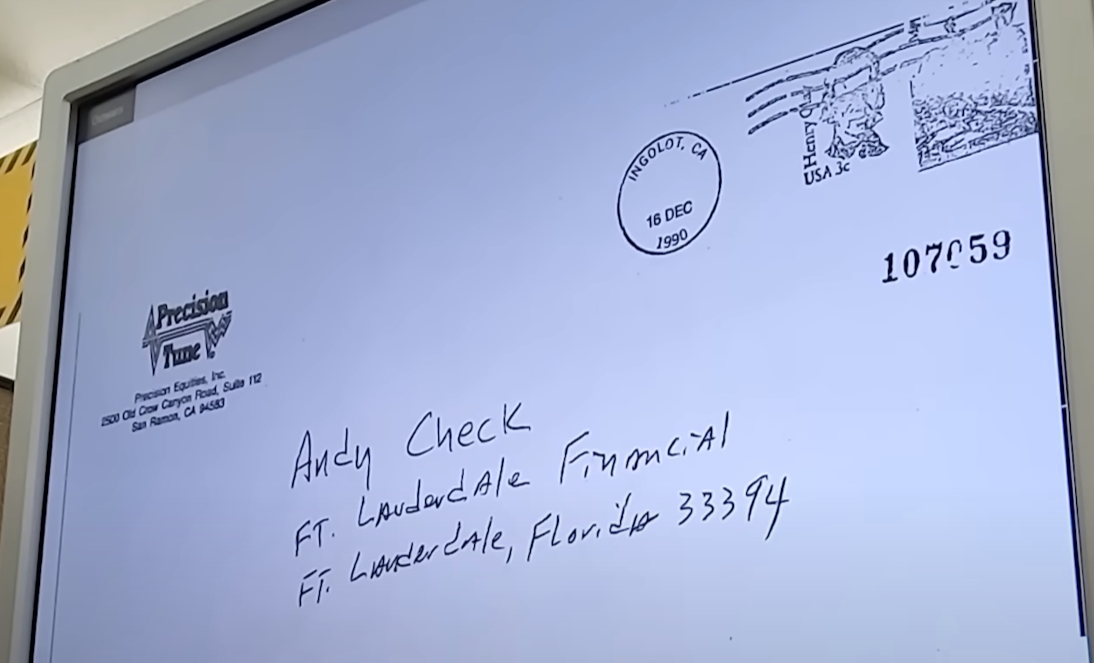 INGOLOT, CA
16 DEC
1990
Henry
USA 3c
107059
Precision
Tune
Precision Equities, Inc.
2500 Old Crow Canyon Road, Suite 112
San Ramon, CA 94583
Andy Check
FT. Lauderdale Financial
FT. Lauderdale, Florida 33394